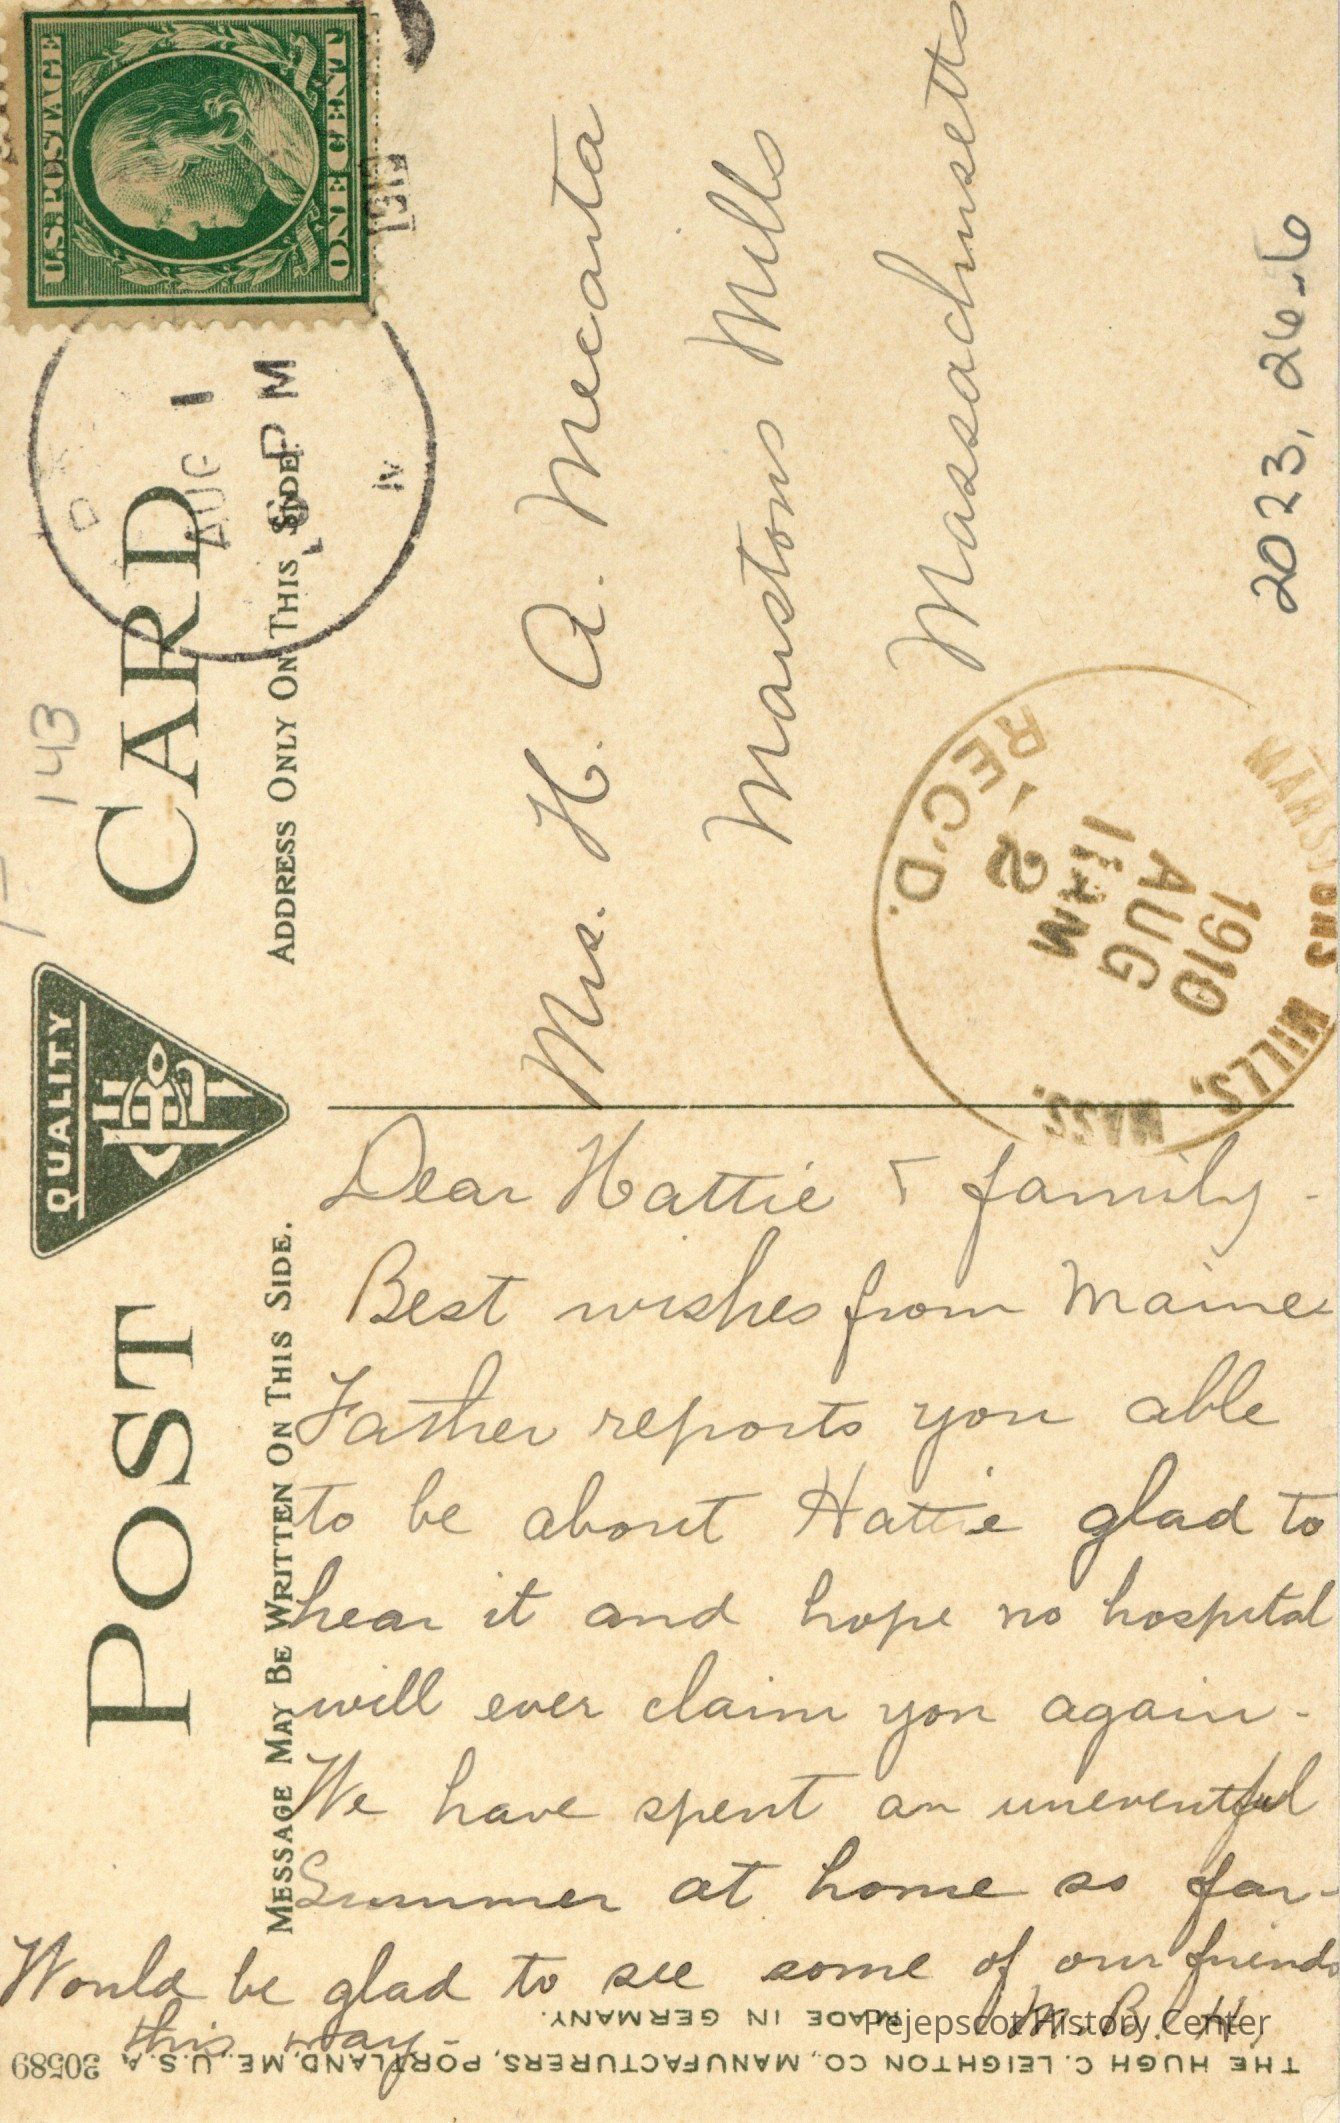 U.S. POSTAGE
ONE CENT
143
POST CARD
QUALITY
ADDRESS ONLY ON THIS SIDE.
MESSAGE MAY BE WRITTEN ON THIS SIDE.
AUG 1
PM
Mrs. H. A. Mecarta
Marstons Mills
Massachusetts
2023, 26-6
MARSTONS MILLS, MASS.
1910
AUG
11 AM
2
REC'D.
Dear Hattie & family -
Best wishes from Maine
Father reports you able
to be about Hattie glad to
hear it and hope no hospital
will ever claim you again -
We have spent an uneventful
Summer at home so far -
Would be glad to see some of our friends
this way - M. B. H.
MADE IN GERMANY.
THE HUGH C. LEIGHTON CO., MANUFACTURERS, PORTLAND, ME., U.S.A.
30589
Pejepscot History Center